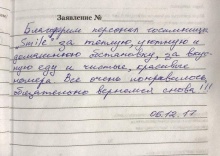 Заявление №
Благодарим персонал гостиницы
"Smile" за теплую, уютную и
домашнюю обстановку, за вкус-
ную еду и чистые, красивые
номера. Все очень понравилось,
обязательно вернемся снова!!!
06.12.17.